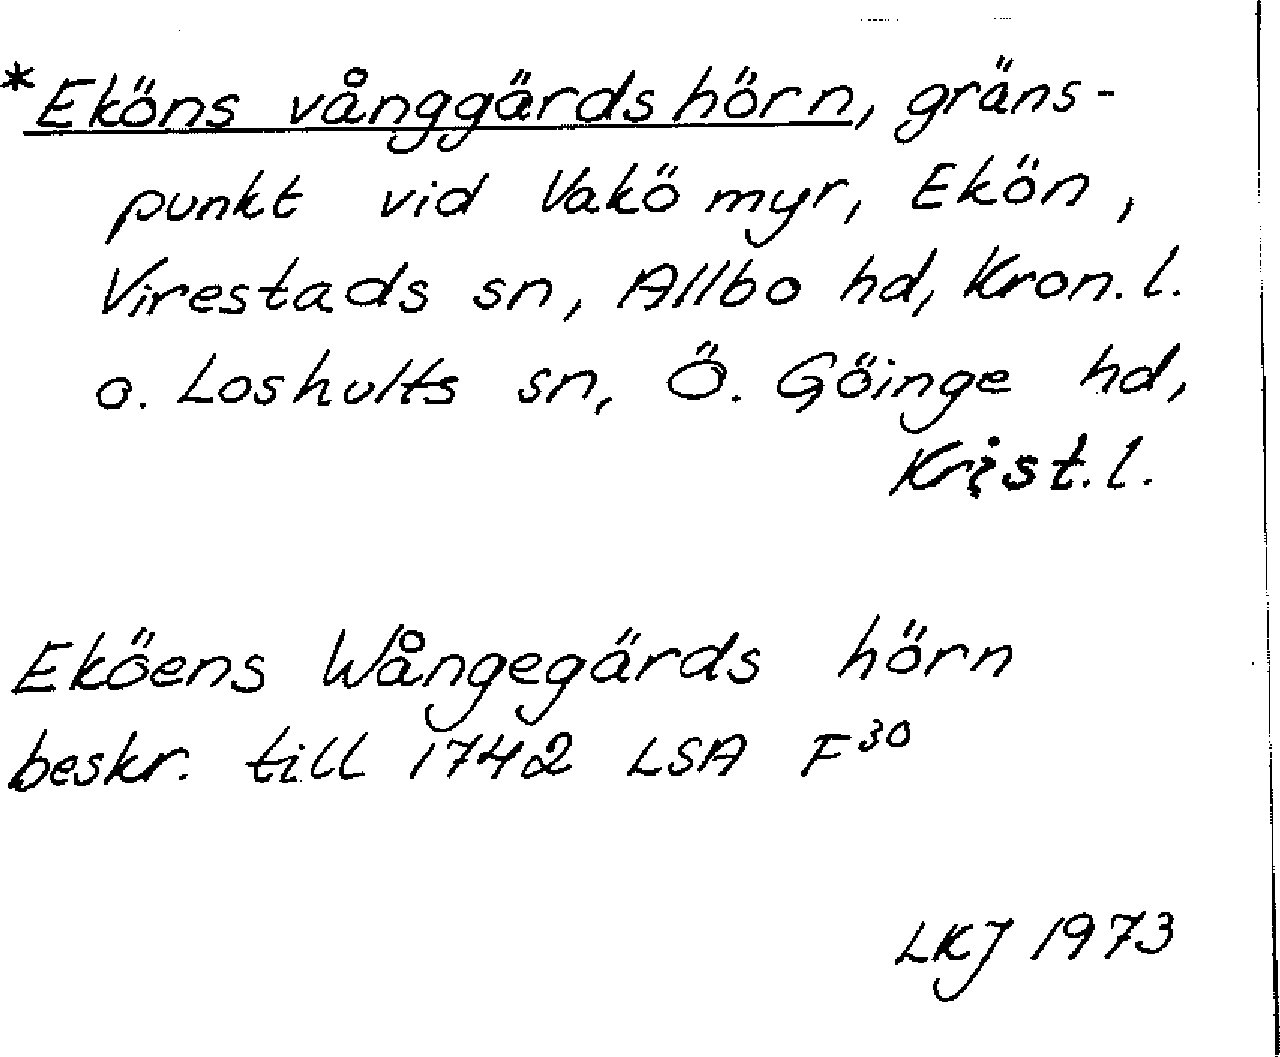 *Eköns vånggärdshörn, gräns-
punkt vid Vakö myr, Ekön,
Virestads sn, Allbo hd, Kron. l.
o. Loshults sn, Ö. Göinge hd,
Krist. l.
Eköens Wångegärds hörn
beskr. till 1742 LSA F³⁰
LKJ 1973